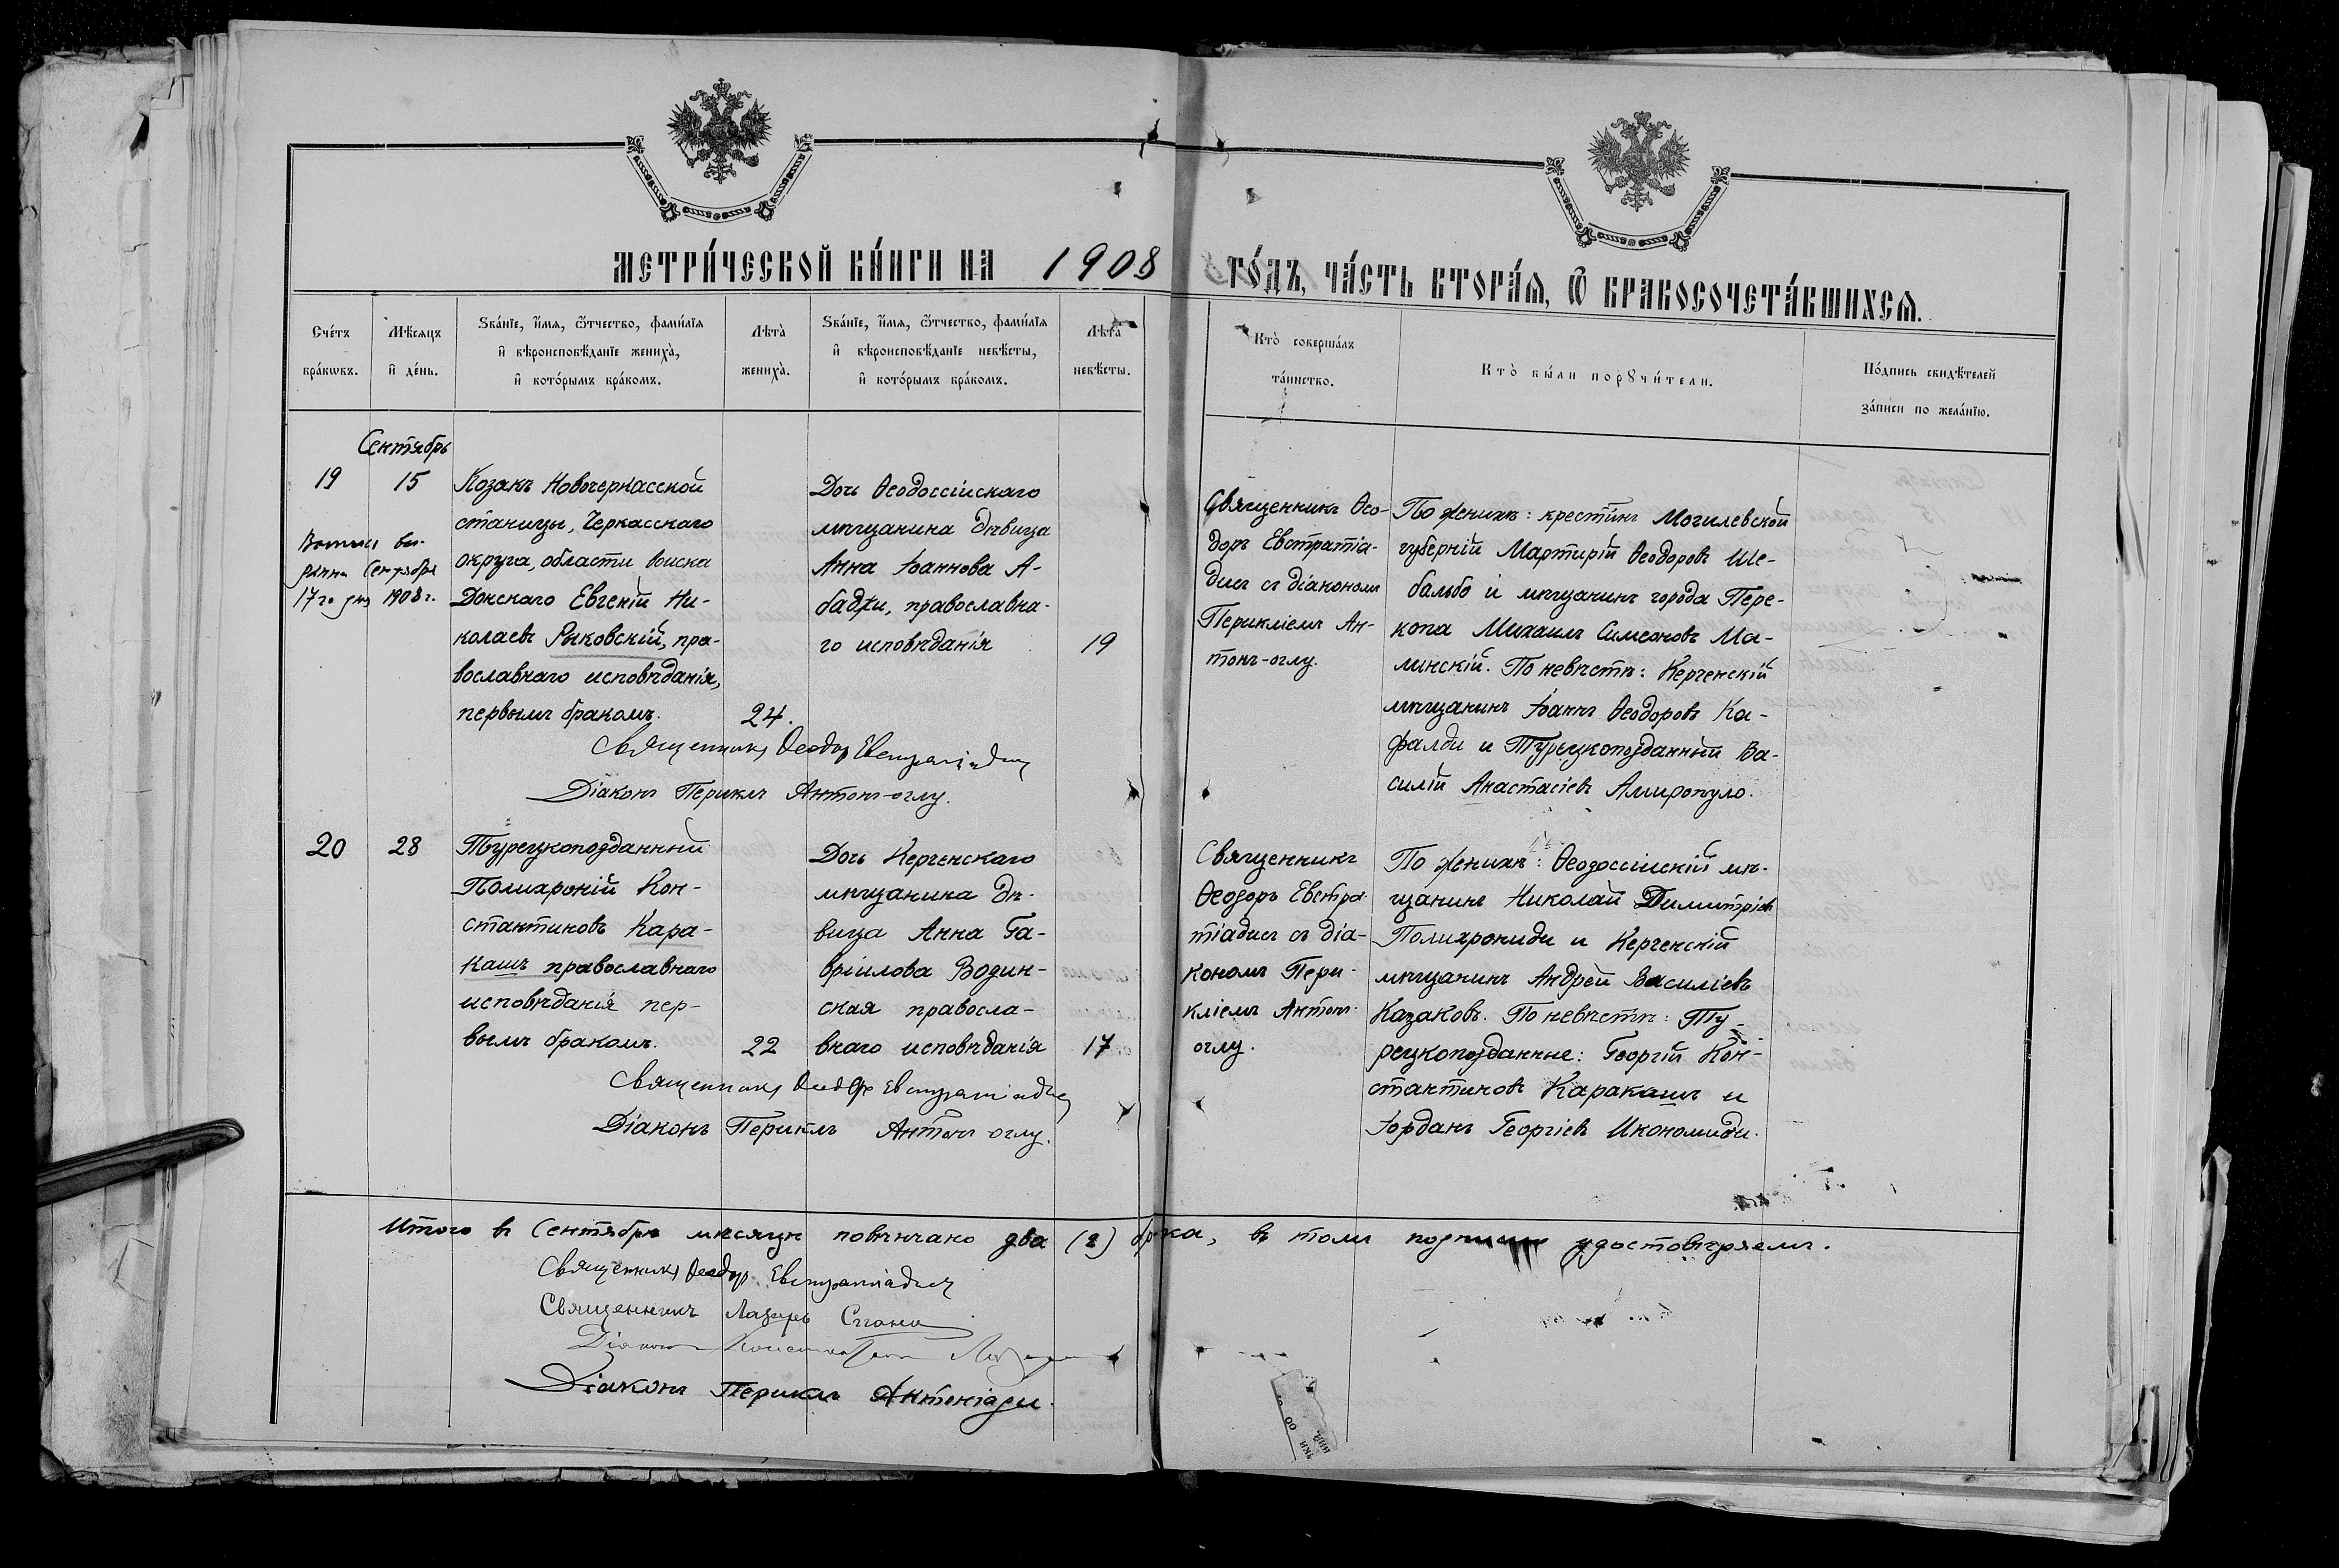 МЕТРИ́ЧЕСКОЙ КНИ́ГИ НА 1908 ГО́ДЪ, ЧА́СТЬ ВТОРА́Я, Ѽ БРАКОСОЧЕТА́ВШИХСЯ.
Сче́тъ
бра́кѡвъ.
Мѣ́сяцъ
и҆ де́нь.
Ѕва́нїе, и҆́мя, ѻ҆́тчество, фами́лїя
и҆ вѣроисповѣ́данїе жениха̀,
и҆ кото́рымъ бра́комъ.
Лѣта̀
жениха̀.
Ѕва́нїе, и҆́мя, ѻ҆́тчество, фами́лїя
и҆ вѣроисповѣ́данїе невѣ́сты,
и҆ кото́рымъ бра́комъ.
Лѣта̀
невѣ́сты.
Кто̀ соверша́лъ
та́инство.
Кто̀ бы́ли порꙋчи́тели.
По́дпись свидѣ́телей
за́писи по жела́нїю.
Сентябрь
19
15
Сентября
17го дня 1908 г.
Козакъ Новочеркасской
станицы, Черкасскаго
округа, области Войска
Донскаго Евгеній Ни-
колаевъ Рыковскій, пра-
вославнаго исповѣданія,
первымъ бракомъ.
24.
Дочь Ѳеодоссійскаго
мѣщанина дѣвица
Анна Іоаннова А-
баджи, православна-
го исповѣданія
19
Священникъ Ѳео-
доръ Евстратіа-
дисъ съ діакономъ
Перикліемъ Ан-
тонъ-оглу.
По женихѣ: крестїнъ Могилевской
губерній Мартирій Ѳеодоровъ Ше-
бальбо и мѣщанинъ города Пере-
копа Михаилъ Симеоновъ Ма-
линскій. По невѣстѣ: Керченскій
мѣщанинъ Іоаннъ Ѳеодоровъ Ка-
фалди и Турецкоподданный Ва-
силій Анастасіевъ Амиропуло.
Священникъ Ѳеодоръ Евстратіадис
Діаконъ Периклъ Антонъ-оглу.
20
28
Турецкоподданный
Полихроній Кон-
стантиновъ Кара-
кашъ православнаго
исповѣданія пер-
вымъ бракомъ.
22
Дочь Керченскаго
мѣщанина дѣ-
вица Анна Га-
вріилова Водин-
ская правосла-
внаго исповѣданія
17
Священникъ
Ѳеодоръ Евстра-
тіадисъ съ діа-
кономъ Пери-
кліемъ Антонъ-
оглу.
По женихѣ: Ѳеодоссійскій мѣ-
щанинъ Николай Димитріевъ
Полихрониди и Керченскій
мѣщанинъ Андрей Василіевъ
Казаковъ. По невѣстѣ: Ту-
рецкоподданные: Георгій Кон-
стантиновъ Каракашъ и
Іорданъ Георгіевъ Икономиди.
Священникъ Ѳеодоръ Евстратіадис
Діаконъ Периклъ Антонъ оглу.
Итого въ Сентябрѣ мѣсяцѣ повѣнчано два (2) брака, въ томъ подписью удостовѣряемъ.
Священникъ Ѳеодоръ Евстратіадис
Священникъ Лазарь
Діаконъ Константинъ
Діаконъ Периклъ Антоніади.